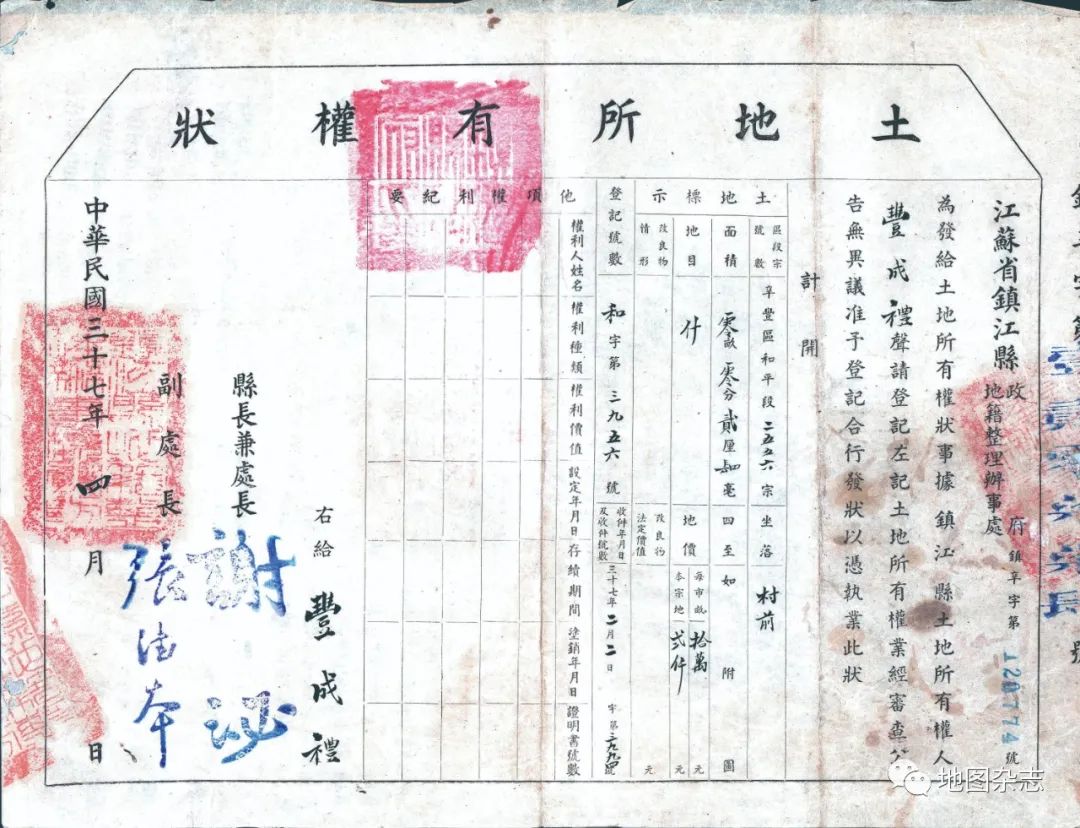 土地所有權狀
江蘇省鎮江縣政府
地籍整理辦事處
鎮辛字第120774號
為發給土地所有權狀事據鎮江縣土地所有權人
豐成禮聲請登記左記土地所有權業經審查公
告無異議准予登記合行發狀以憑執業此狀
計開
土地標示
區段宗號數
辛豐區和平段二五五六宗
坐落
村前
面積
零畝零分貳厘四毫
四至如附圖
地目
什
地價
每市畝拾萬元
本宗地弍仟元
改良物情形
改良物法定價值
元
登記號數
和字第三九五六號
收件年月日及收件號數
三十七年二月二日
字第三九九四號
他項權利紀要
權利人姓名
權利種類
權利價值
設定年月日
存續期間
塗銷年月日
證明書號數
右給豐成禮
縣長兼處長
謝泌
副處長
張法本
中華民國三十七年四月日
地图杂志